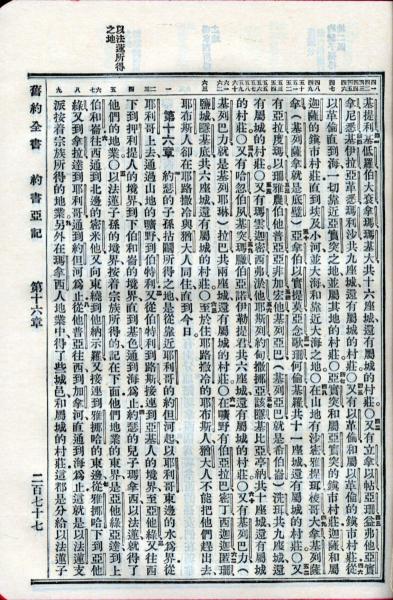 以法蓮所得
之地
基提利基低羅伯大袞拿瑪瑪基大共十六座城還有屬城的村莊○又有立拿以帖亞珊益弗他亞實
拿尼悉基伊拉亞革悉瑪利沙共九座城還有屬城的村莊○又有以革倫和屬以革倫的鎮市村莊
以革倫直到海一切靠近亞實突之地並屬其地的村莊○亞實突和屬亞實突的鎮市村莊迦薩和屬
迦薩的鎮市村莊直到埃及小河並大海和靠近大海之地○在山地有沙密雅提珥梭哥大拿基列薩
拿（基列薩拿就是底璧）亞拿伯以實提莫亞念歌珊何倫基羅共十一座城還有屬城的村莊○又
有亞拉度瑪以珊雅農伯他普亞亞非加宏他基列亞巴（基列亞巴就是希伯崙）洗珥共九座城還
有屬城的村莊○又有瑪雲迦密西弗淤他耶斯列約甸撒挪亞該隱基比亞亭納共十座城還有屬城
的村莊○又有哈忽伯夙基突瑪臘伯亞諾伊勒提君共六座城還有屬城的村莊○又有基列巴力（
基列巴力就是基列耶琳）拉巴共兩座城還有屬城的村莊○在曠野有伯亞拉巴密丁西迦迦匿珊
鹽城隱基底共六座城還有屬城的村莊○至於住耶路撒冷的耶布斯人猶大人不能把他們趕出去
耶布斯人卻在耶路撒冷與猶大人同住直到今日
第十六章　約瑟的子孫拈鬮所得之地是從靠近耶利哥的約但河起以耶利哥東邊的水爲界從
耶利哥上去通過山地的曠野到伯特利又從伯特利到路斯接連到亞基人的境界至亞他綠又往西
下到押利提人的境界到下伯和崙的境界直到基色通到海爲止約瑟的兒子瑪拿西以法蓮就得了
他們的地業○以法蓮子孫的境界按着宗族所得的記在下面他們地業的東界是亞他綠亞達到上
伯和崙往西通到北邊的密米他又向東繞到他納示羅又接連到雅挪哈的東邊從雅挪哈下到亞他
綠又到拿拉達到耶利哥通到約但河爲止從他普亞往西到加拿河直通到海爲止這就是以法蓮支
派按着宗族所得的地業另外在瑪拿西人地業中得了些城邑和屬城的村莊這都是分給以法蓮子
舊約全書　約書亞記　第十六章　二百七十七